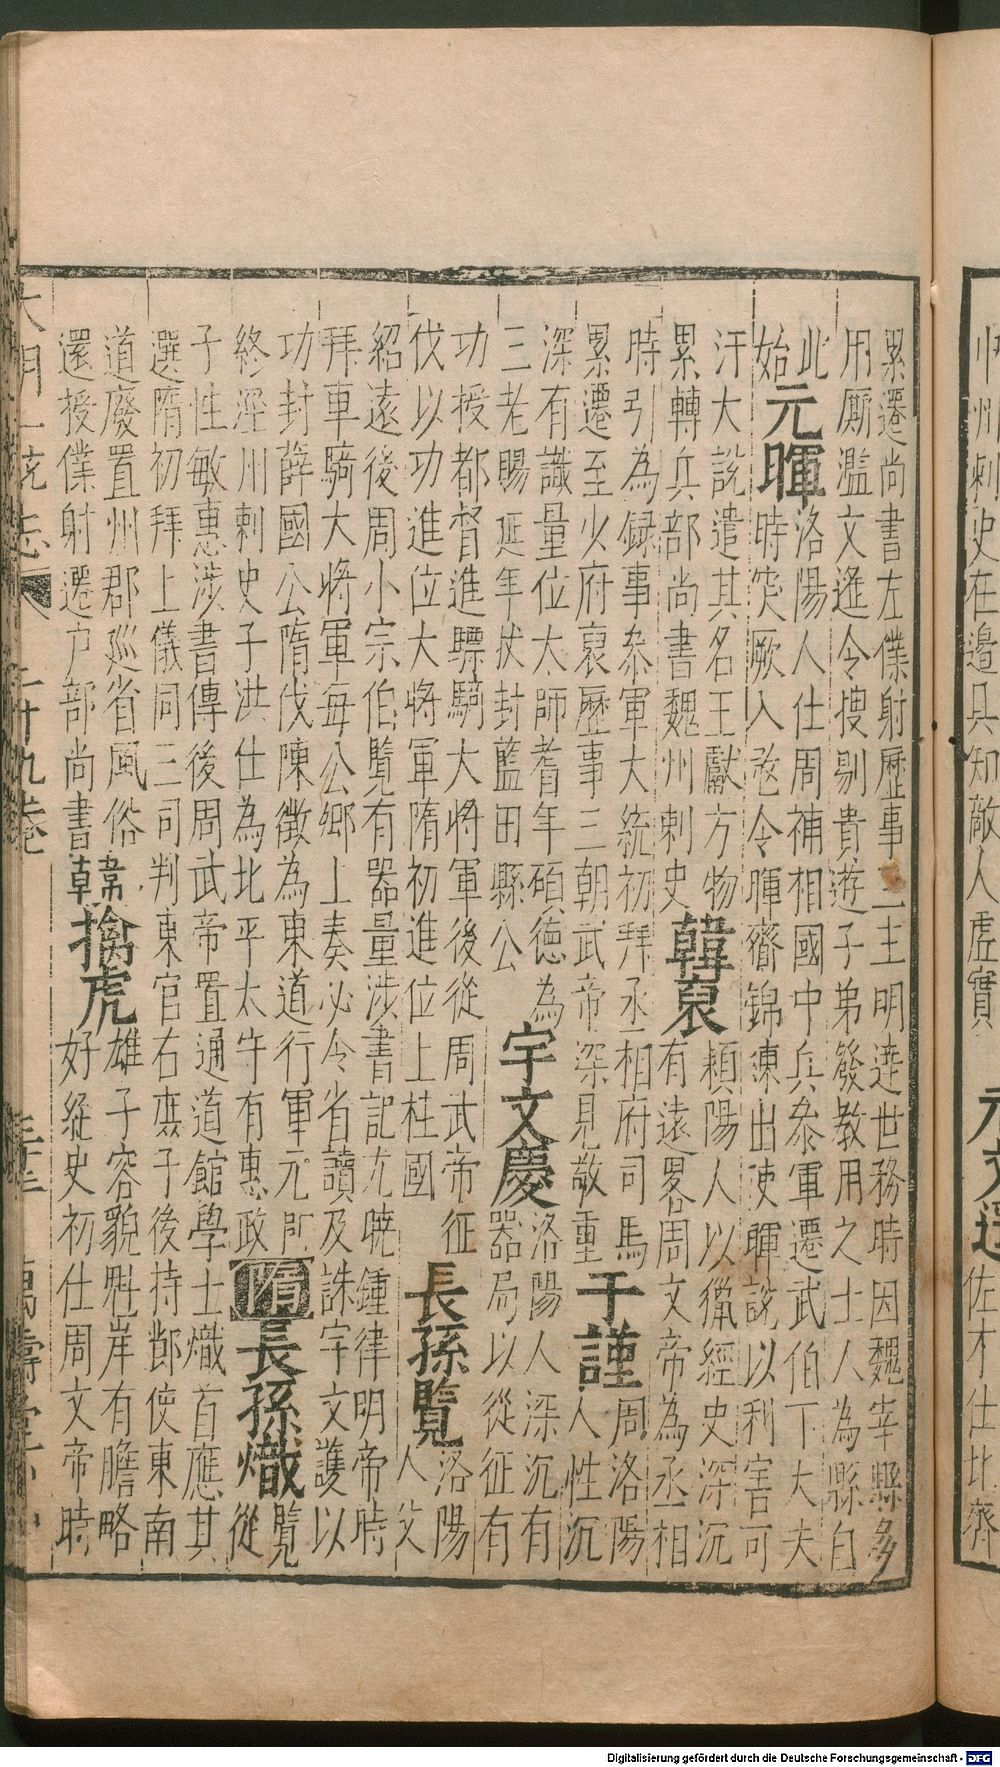 州刺史在邊具知敵人虛實 元文遙 佐才仕北齊
累遷尚書左僕射歷事二主明達世務時因魏宰縣多
用廝濫文遙令搜剔貴遊子弟發教用之士人為縣自
此
始
元暉
洛陽人仕周補相國中兵叅軍遷武伯下大夫
時突厥入寇令暉齎錦練出使暉說以利害可
汗大說遣其名王獻方物
累轉兵部尚書魏州刺史
韓裒
潁陽人以獵經史深沉
有遠畧周文帝為丞相
時引為録事叅軍大統初拜丞相府司馬
累遷至少府裒歷事三朝武帝深見敬重
于謹
周洛陽
人性沉
深有識量位大師耆年碩德為
三老賜延年杖封藍田縣公
宇文慶
洛陽人深沉有
器局以從征有
功授都督進驃騎大將軍後從周武帝征
伐以功進位大將軍隋初進位上柱國
長孫覽
洛陽
人父
紹遠後周小宗伯覽有器量涉書記尤曉鍾律明帝時
拜車騎大將軍每公卿上奏必令省讀及誅宇文護以
功封薛國公隋伐陳徵為東道行軍元帥
終涇州刺史子洪仕為北平太守有惠政
隋
長孫熾
覽
從
子性敏惠涉書傳後周武帝置通道館學士熾首應其
選隋初拜上儀同三司判東官右庶子後持節使東南
道廢置州郡巡省風俗
還授僕射遷户部尚書
韓擒虎
雄子容貌魁岸有膽略
好經史初仕周文帝時
大明一統志 二十九卷 萬壽堂刊
Digitalisierung gefördert durch die Deutsche Forschungsgemeinschaft - DFG